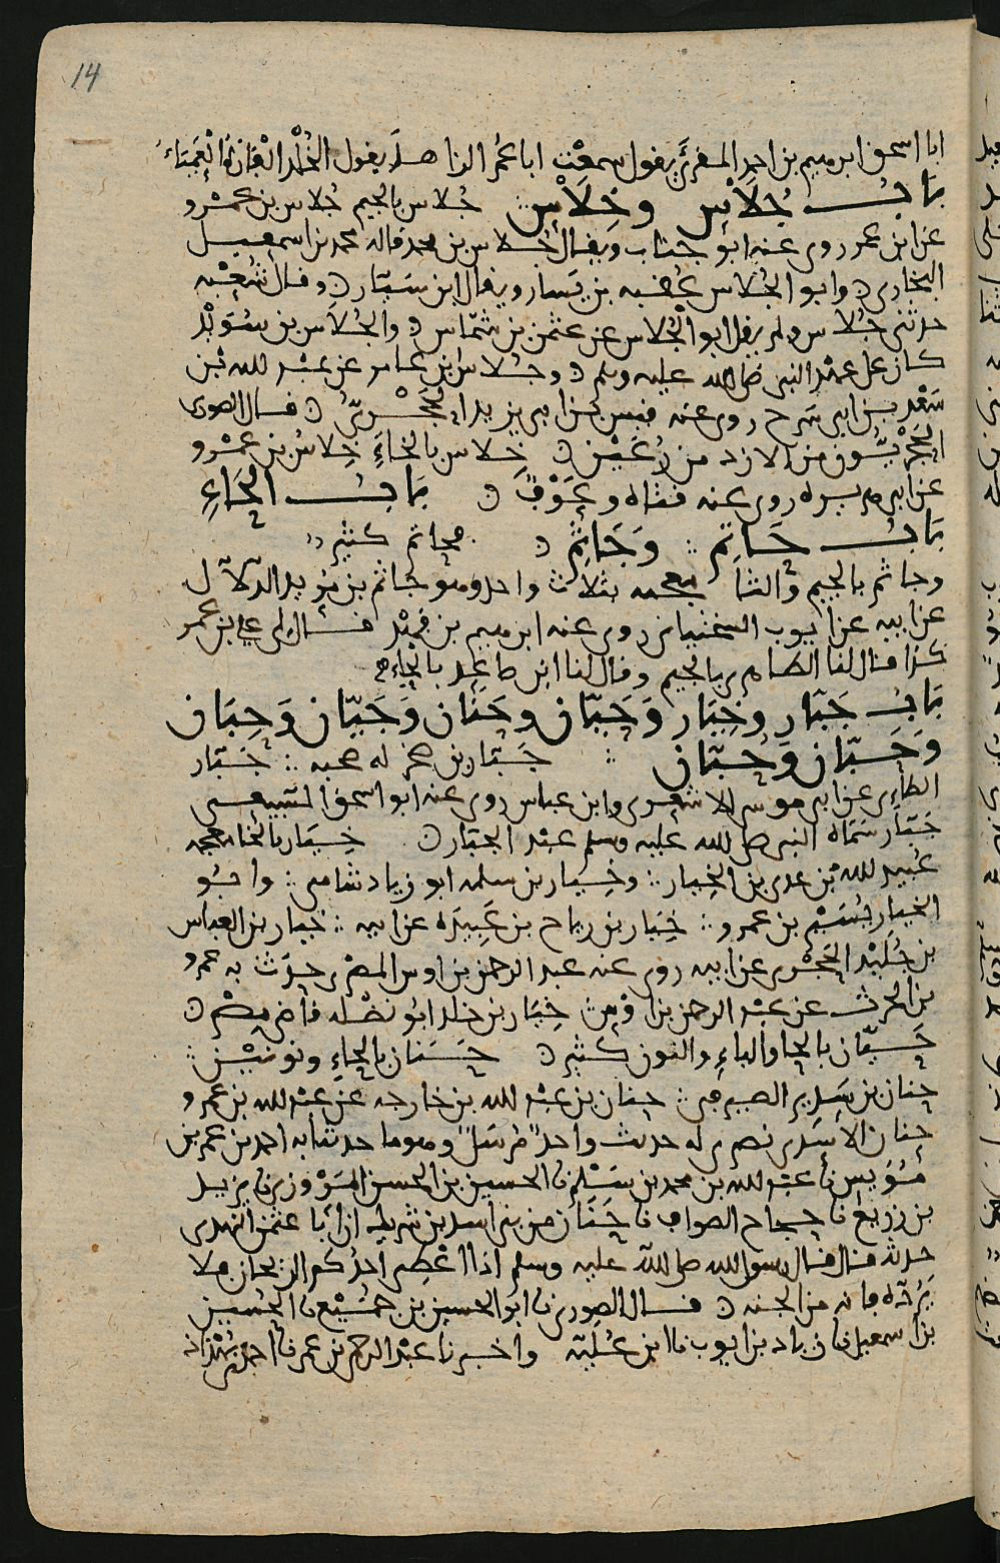 14
ابا اسحق ابرهيم بن احمد المقرئ يقول سمعت ابا عمر الزاهد يقول الخلد الفارة العمياء
باب جلاس وخلاس جلاس بالجيم جلاس بن عمرو
عن ابن عمر روى عنه ابو جناب ويقال جلاس بن محمد قاله محمد بن اسمعيل
البخاري وابو الجلاس عقبه بن يسار ويقال ابن سيار وقال شعبه
حدثني جلاس ولم يقل ابو الجلاس عن عثمن بن شماس والجلاس بن سويد
كان على عهد النبي صلى الله عليه وسلم وجلاس بن عامر عن عبد الله بن
سعد بن ابي سرح روى عنه قيس بن ابي يزيد الحجري قال الصوري
الحجريون من الازد من رعين خلاس بالخاء خلاس بن عمرو
عن ابي هريره روى عنه قتاده وعوف باب الحاء
باب حاتم وجاثم حاتم كثير
وجاثم بالجيم والثا معجمه بثلاث واحد وهو جاثم بن مزيد الدلال
عن ابيه عن ايوب السختياني روى عنه ابرهيم بن فهد قال لي علي بن عمر
كذا قال لنا بالجيم وقال لنا ابن صاعد بالحاء
باب جبار وخيار وحيان وحنان وجيان وحبان
وحبان وحبان جبار بن صخر له صحبه جبار
الطاءي عن ابي موسى الاشعري وابن عباس روى عنه ابو اسحق السبيعي
جبار سماه النبي صلى الله عليه وسلم عبد الجبار خيار بالخا معجمه
عبيد الله بن عدي بن الخيار وخيار بن سلمه ابو زياد شامي وابو
الخيار يسير بن عمرو خيار بن رياح بن عبيده عن ابيه خيار بن العباس
بن الحجري عن ابيه روى عنه عبد الرحمن بن اوس المصري حدث به عمرو
بن الحرث عن عبد الرحمن بن اوس خيار بن خلد ابو نضله قاضي مصر
حيان بالحا والياء والنون كثير حنان بالحاء ونونين
حنان بن سدير الصيرفي حنان بن عبد الله بن خارجه عن عبد الله بن عمرو
حنان الاسدي بصري له حديث واحد مرسل وهو ما حدثنا به احمد بن عمر بن
نا عبد الله بن محمد بن سلم نا الحسين بن الحسن المروزي نا يزيد
بن زريع نا حجاج الصواف نا حنان من بني اسد بن شريك ان ابا عثمن النهدي
حدثه قال قال رسول الله صلى الله عليه وسلم اذا اعطي احدكم الريحان فلا
يرده فانه من الجنه قال الصوري نا ابو الحسين بن جميع نا الحسين
بن اسمعيل نا زياد بن ايوب نا ابن علية واخبرنا عبد الرحمن بن عمر نا احمد بن